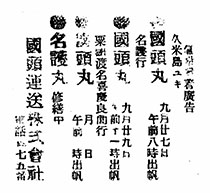 著廣告
久米島ユキ
九月廿七日
國頭丸
午前八時出帆
名護行
九月廿九日
國頭丸
午前十一時出帆
渡名喜慶良間行
月 日
頭丸
午前 時出帆
名護丸 修繕中
國頭運送株式會社
電話七五番